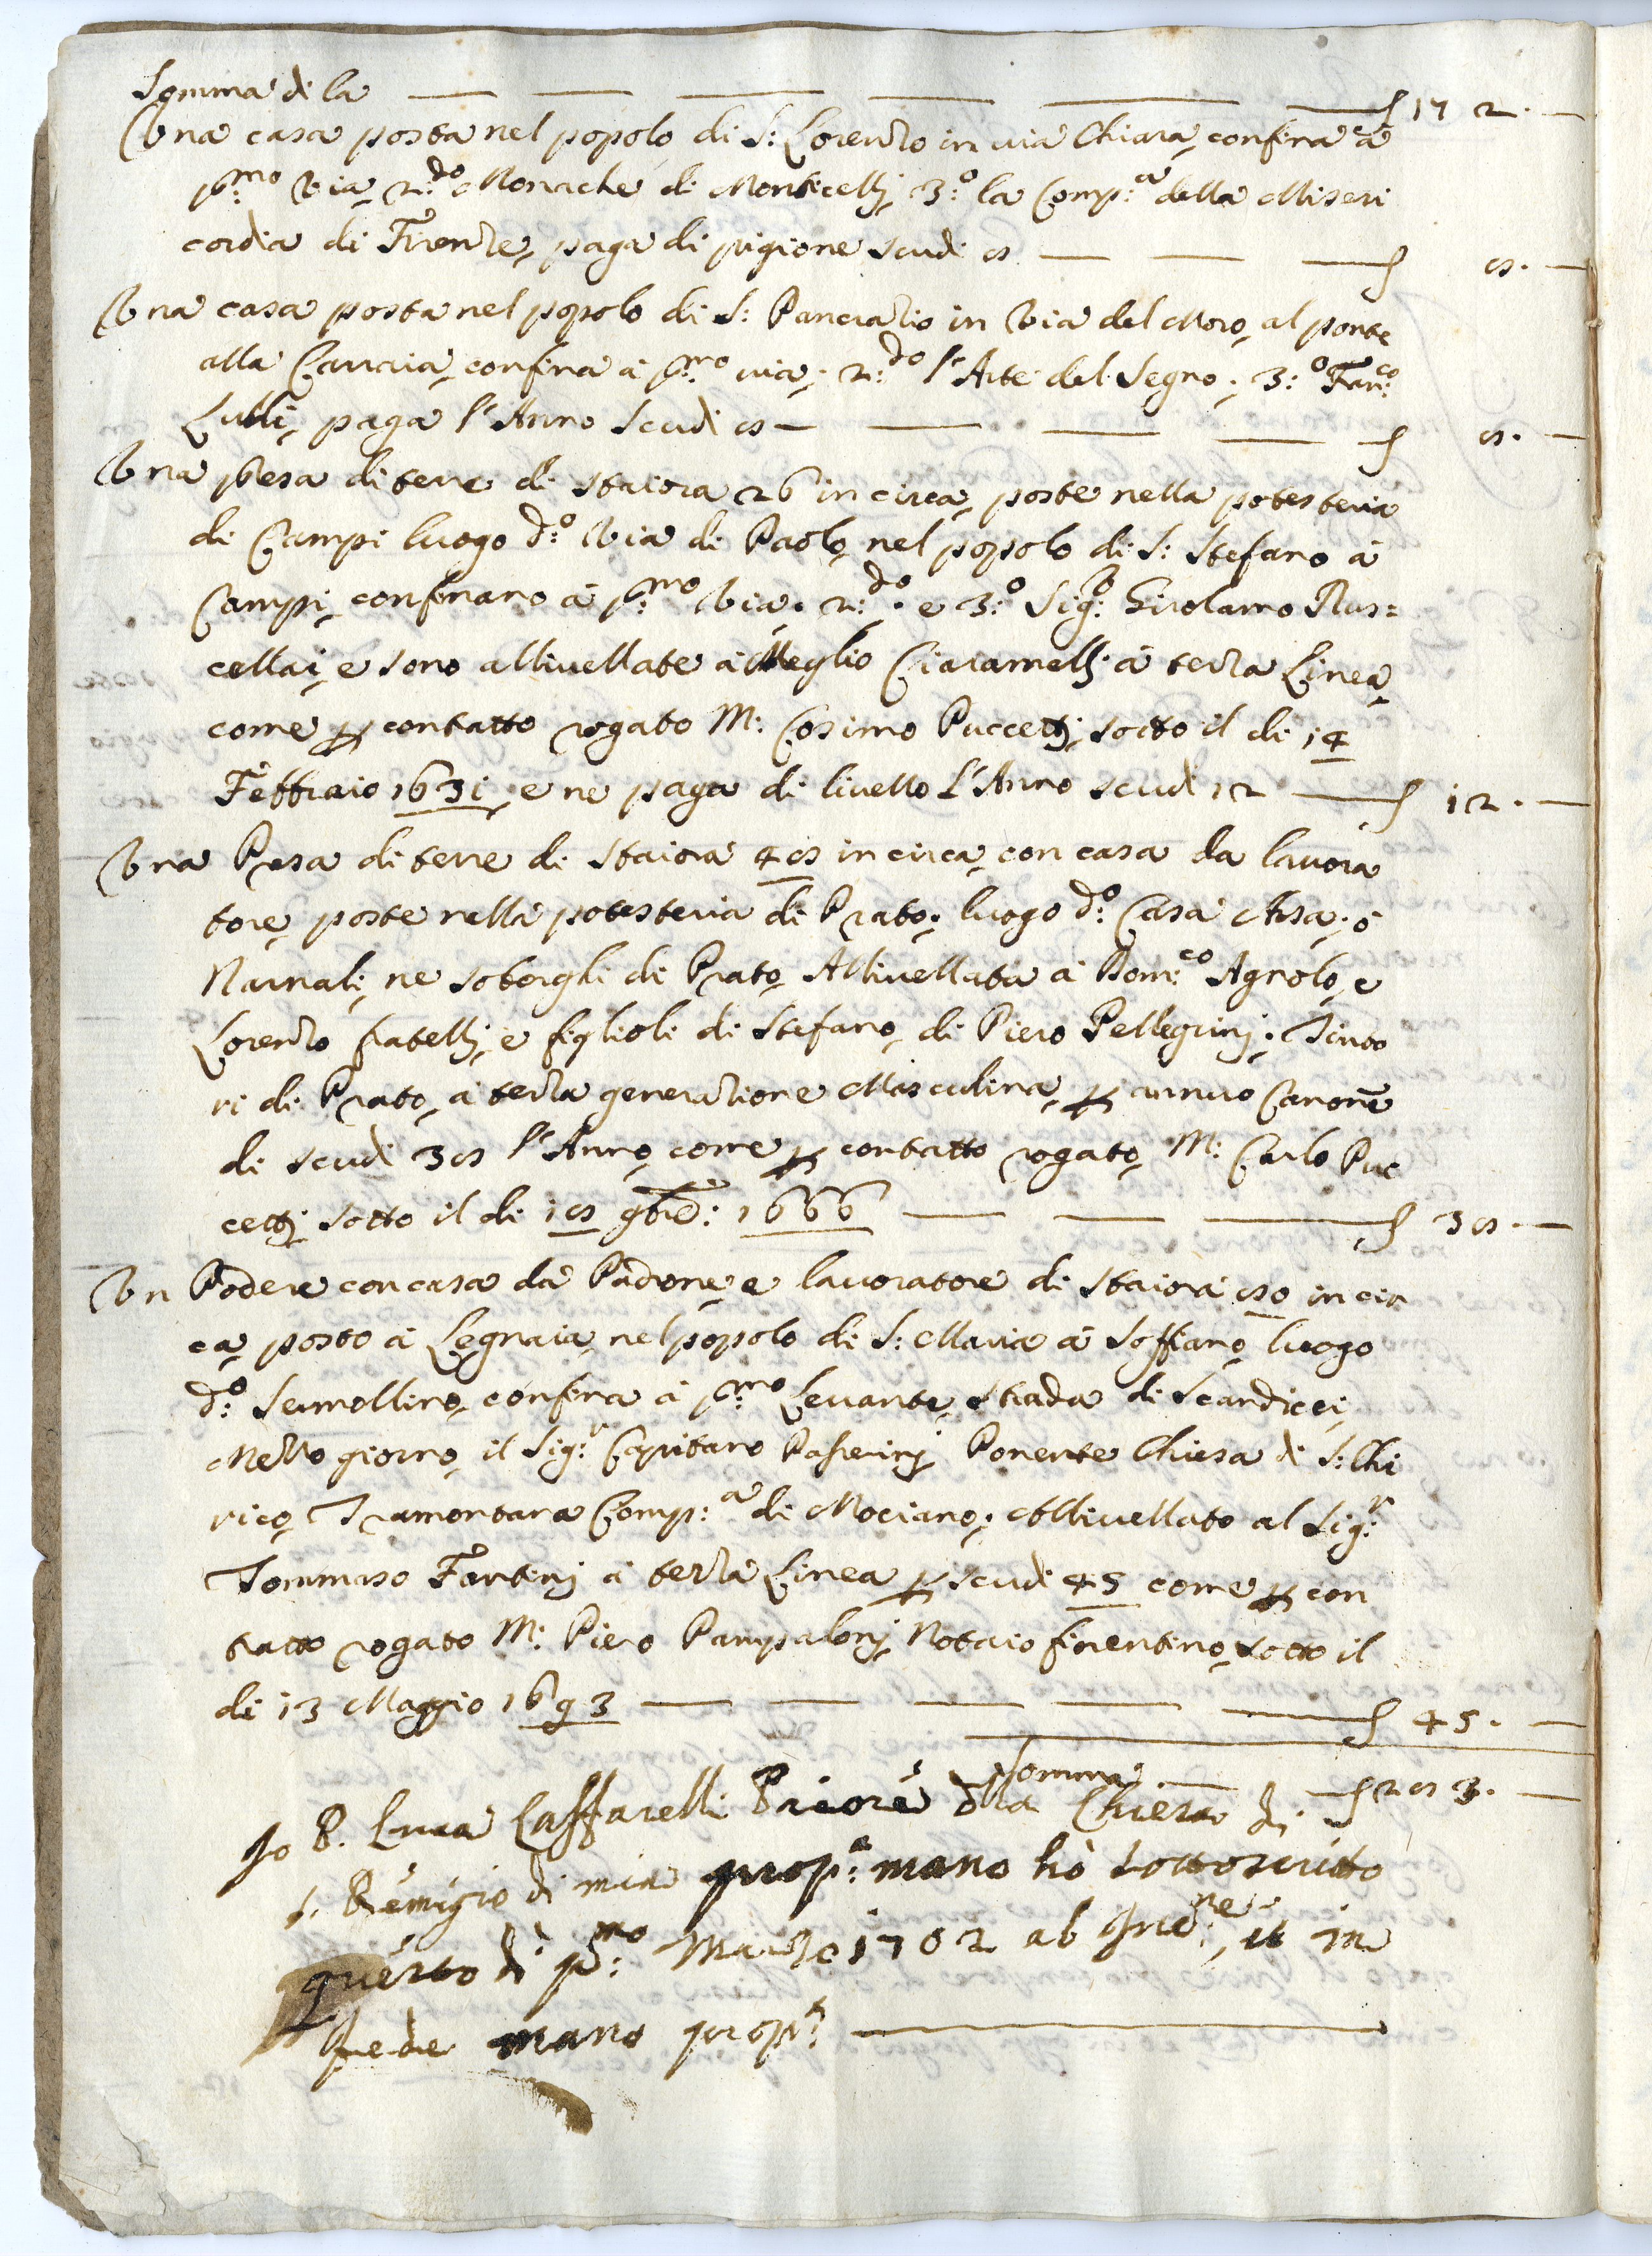 Somma di la — — — — — — ∫ 172. —
Una casa posta nel popolo di S: Lorenzo in via Chiara, confina à
p:mo Via, 2:do Monache di Monticelli, 3:o la Comp:a della Miseri
cordia di Firenze, paga di pigione scudi 8 — — — ∫ 8. —
Una casa posta nel popolo di S: Pancrazio in Via del Moro, al ponte
alla Carraia, confina à p:mo via; 2:do l'Arte del Segno; 3:o Fran:co
Lulli, paga l'Anno Scudi 8 — — — — ∫ 8. —
Una presa di terre di staiora 26 in circa, poste nella potesteria
di Campi luogo d:o Via di Paolo, nel popolo di S: Stefano à
Campi, confinano à p:mo Via. 2:do. e 3:o Sig:r Girolamo Rus=
cellai, e sono allivellate à Meglio Ciaramelli à terza Linea,
come p contratto rogato M: Cosimo Puccetti, sotto il di 14
Febbraio 1631, e ne paga di livello l'Anno scudi 12 — ∫ 12. —
Una Presa di terre di staiora 48 in circa, con casa da lavora
tore, poste nella potesteria di Prato; luogo d:o Casa Arsa; ò
Narnali, ne soborghi di Prato, Allivellata à Dom:co Agnolo, e
Lorenzo fratelli, e figlioli di Stefano, di Piero Pellegrini; Tinto
ri di Prato, à terza generatione Masculina, p annuo Canone
di scudi 38 l'Anno, come p contratto rogato, M: Carlo Puc
cetti sotto il di 18 9bre: 1666 — — — ∫ 38. —
Un Podere con casa da Padrone, e lavoratore di staiora 80 in cir
ca, posto à Legnaia, nel popolo di S: Maria à Soffiano, luogo
d:o Sermollino, confina à p:mo Levante, strada di Scandicci,
Mezzo giorno, il Sig:r Capitano Passerini Ponente Chiesa di S: Chi
rico, Tramontana Comp:a di Mociano; Allivellato al Sig:r
Tommaso Fantini à terza Linea p scudi 45 come p con
tratto rogato M: Piero Pampaloni, Notaio fiorentino, sotto il
di 13 Maggio 1693 — — — — — ∫ 45. —
Somma — ∫ 283. —
Io P. Luca Caffarelli Priore dlla Chiesa di
S. Remigio di mia prop:a mano hò sottoscritto
questo dì p:mo Marzo 1702 ab Inc:ne, et in
fede mano prop:a —